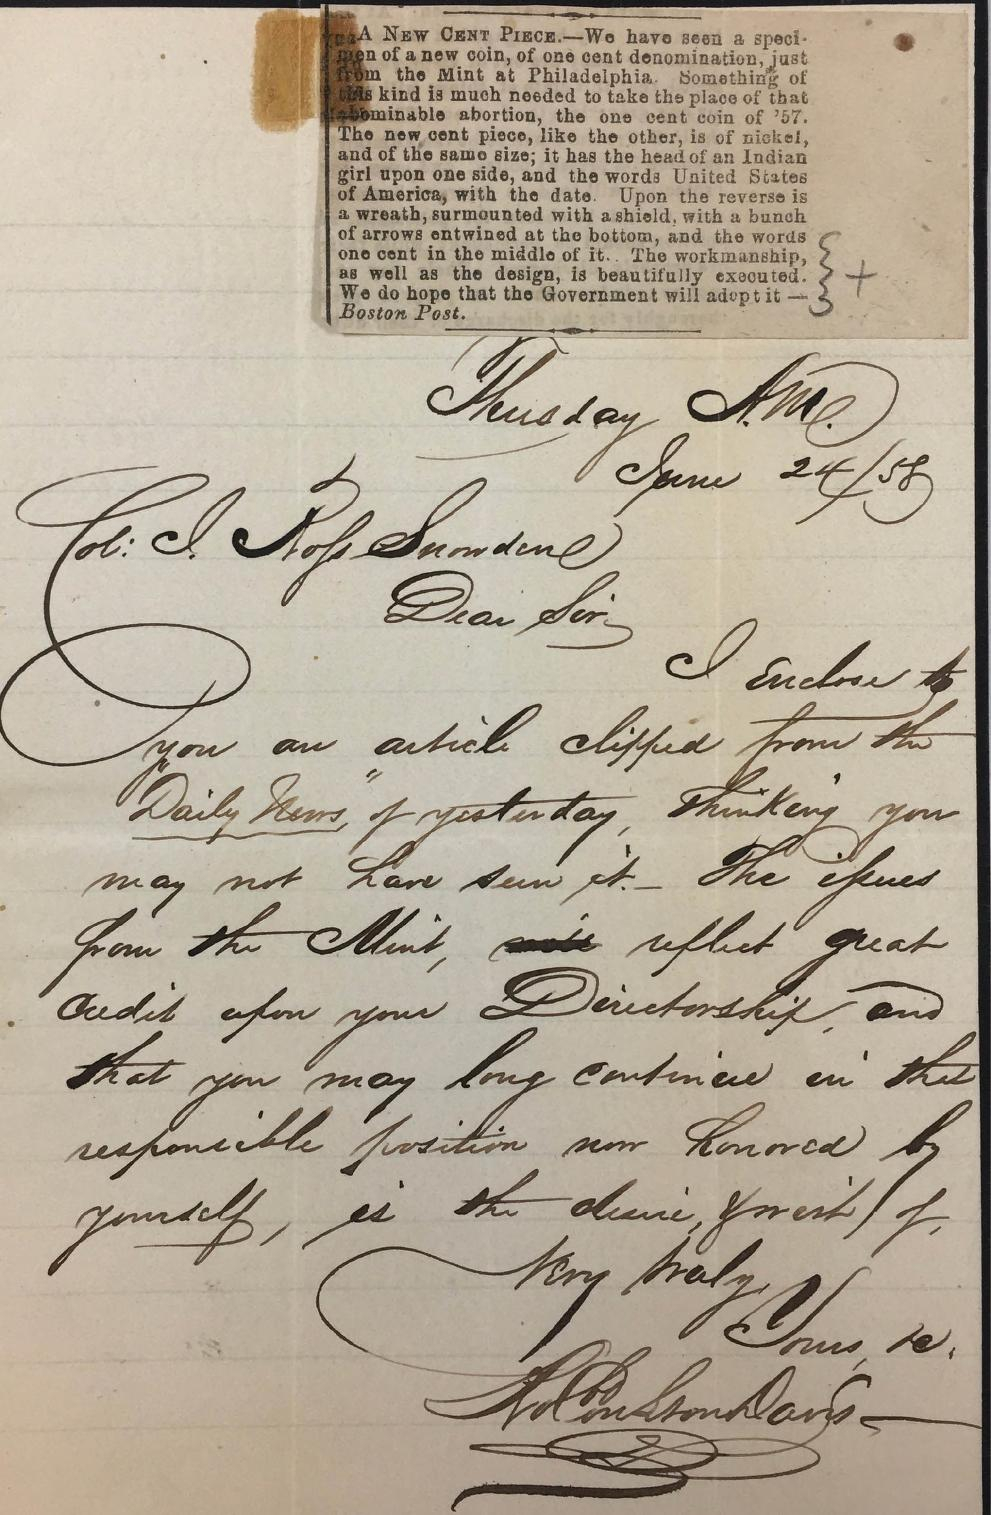 A NEW CENT PIECE.—We have seen a speci-
men of a new coin, of one cent denomination, just
from the Mint at Philadelphia. Something of
this kind is much needed to take the place of that
abominable abortion, the one cent coin of '57.
The new cent piece, like the other, is of nickel,
and of the same size; it has the head of an Indian
girl upon one side, and the words United States
of America, with the date. Upon the reverse is
a wreath, surmounted with a shield, with a bunch
of arrows entwined at the bottom, and the words
one cent in the middle of it. The workmanship,
as well as the design, is beautifully executed.
We do hope that the Government will adopt it —
Boston Post.
Thursday A.M.
June 24/58
Col: J. Ross Snowden
Dear Sir,
I enclose to
you an article clipped from the
"Daily News," of yesterday, thinking you
may not have seen it. — The issues
from the Mint, reflect great
credit upon your Directorship, and
that you may long continue in that
responsible position now honored by
yourself, is the desire, & wish, of,
Very truly,
Yours, &c.
Davis